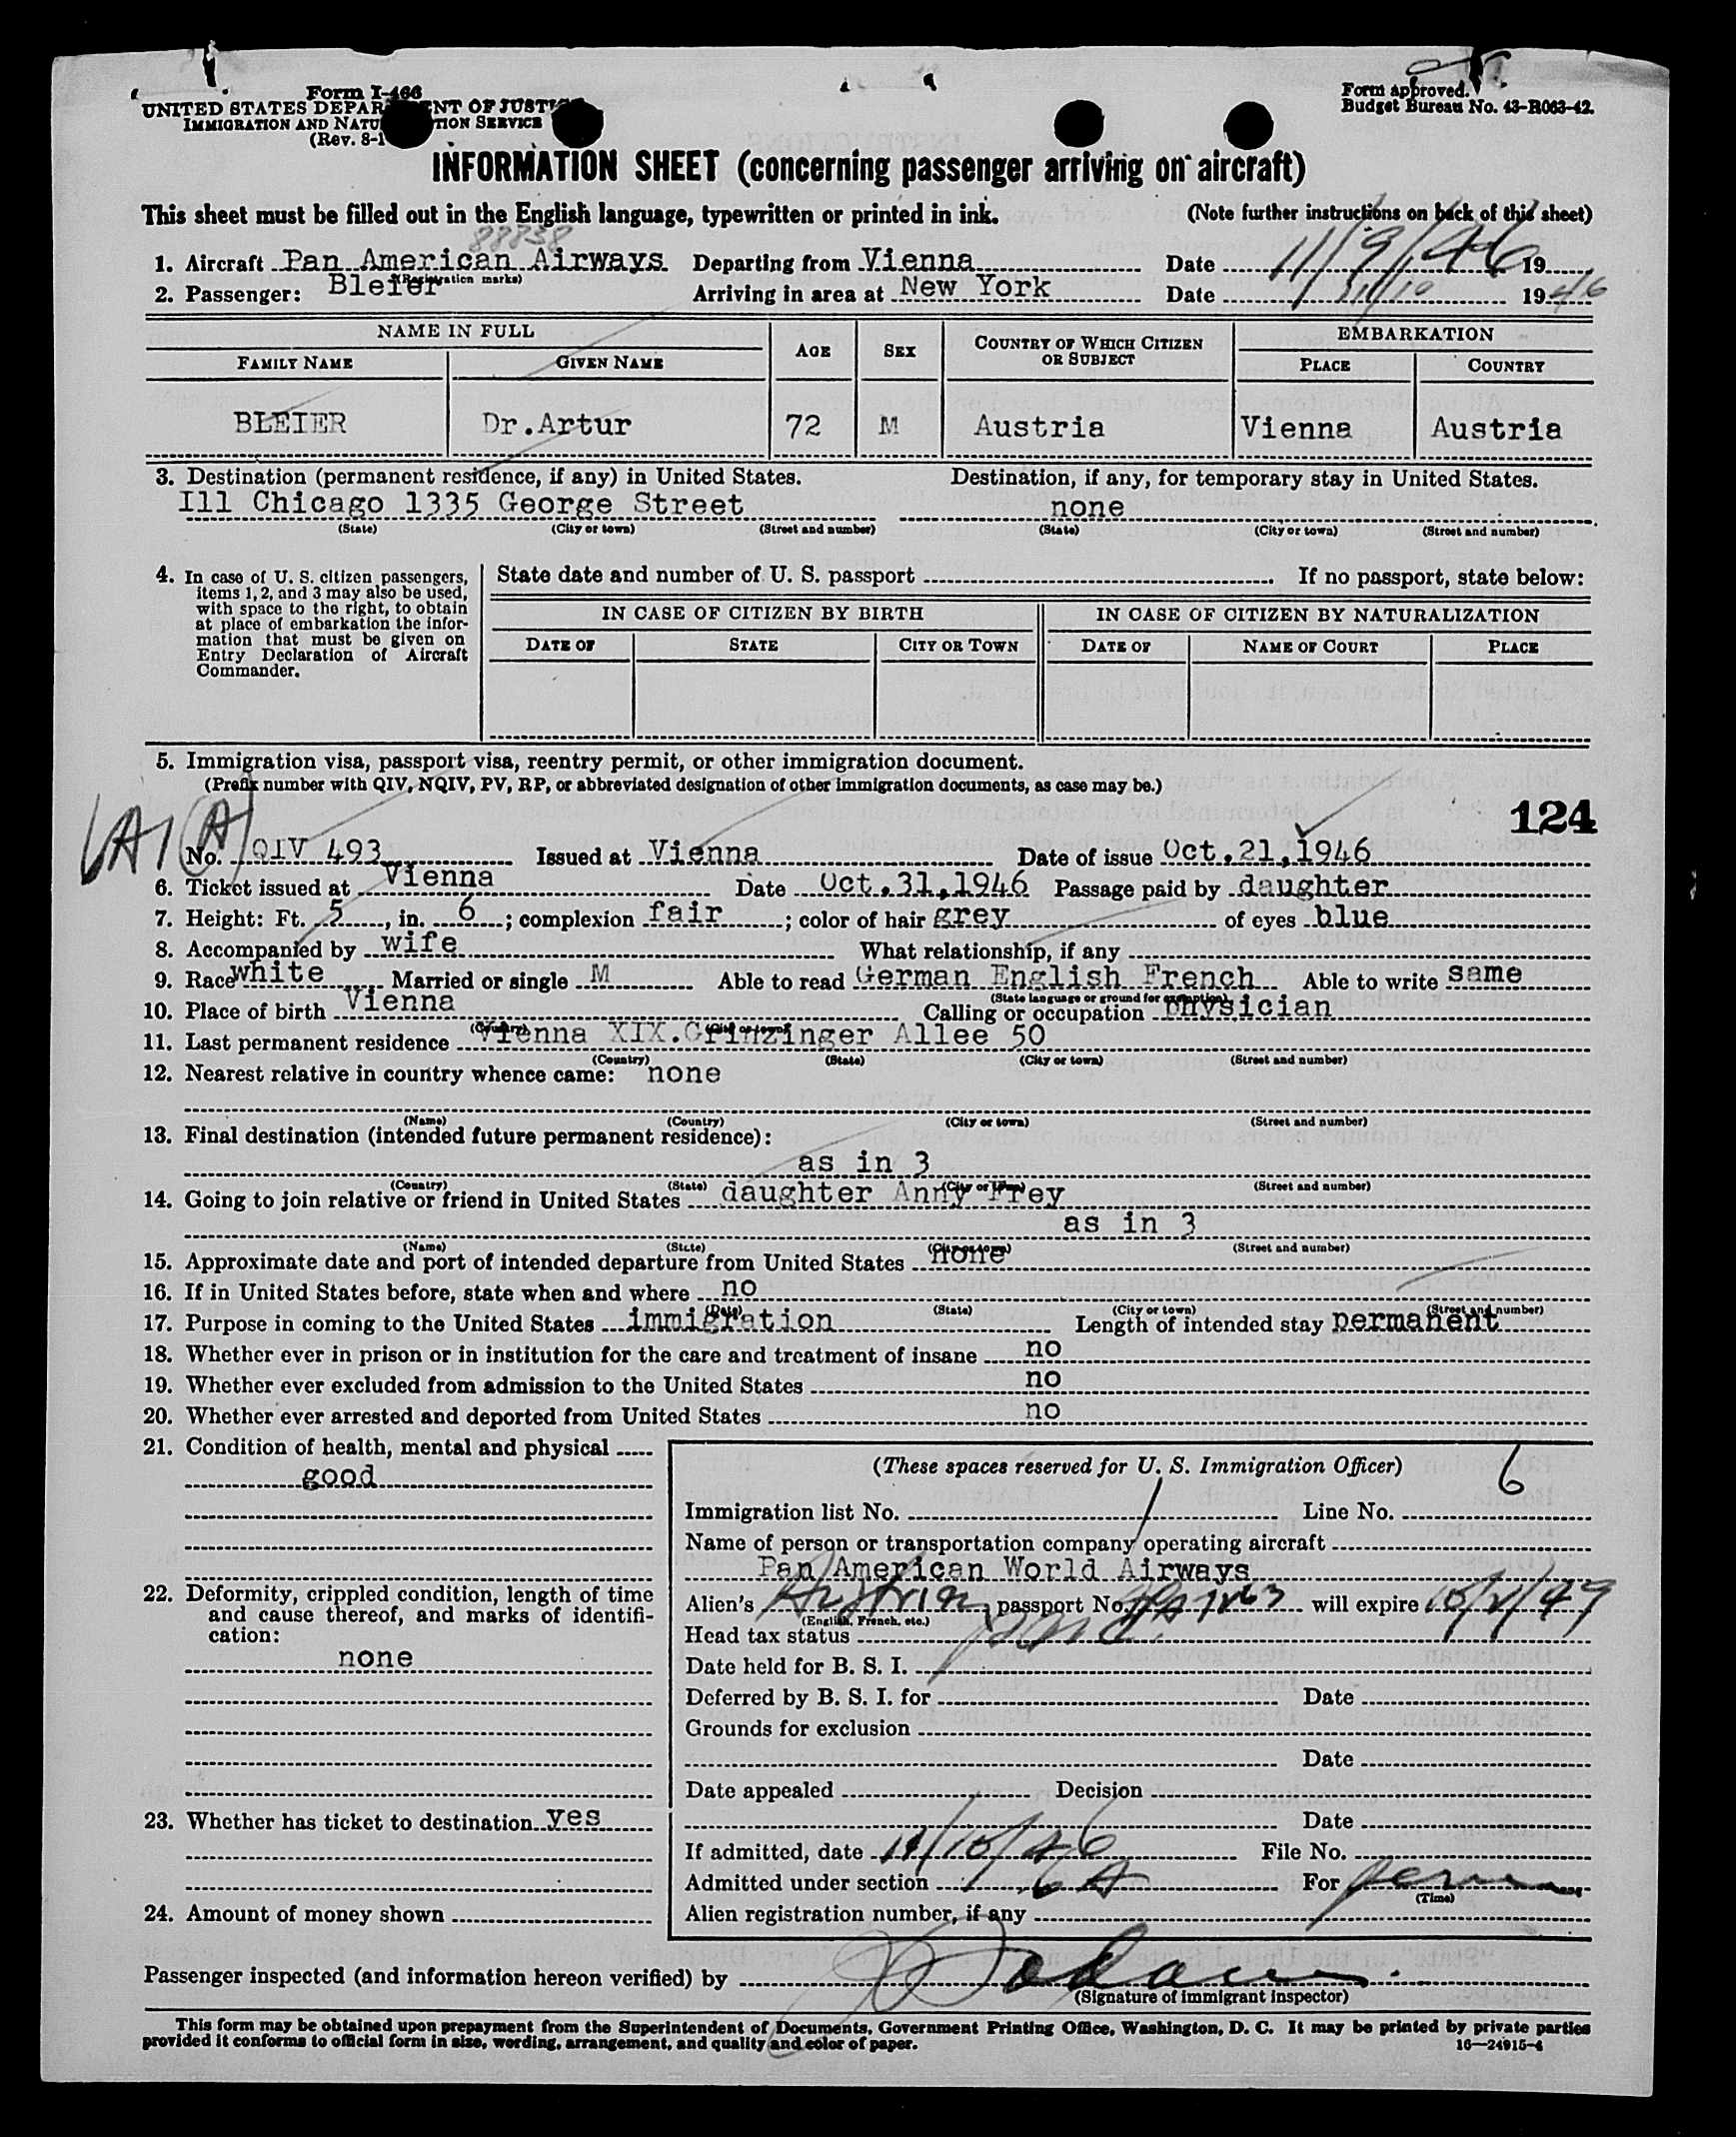 Form I-466
UNITED STATES DEPAR NT OF JUST
IMMIGRATION AND NATU TION SERVICE
(Rev. 8-1
Form approved.
Budget Bureau No. 43-R063-42.
INFORMATION SHEET (concerning passenger arriving on aircraft)
This sheet must be filled out in the English language, typewritten or printed in ink. (Note further instructions on back of this sheet)
88838
1. Aircraft Pan American Airways Departing from Vienna Date 11/9/46 19
(Registration marks)
2. Passenger: Bleier Arriving in area at New York Date 11/10 1946
NAME IN FULL AGE SEX COUNTRY OF WHICH CITIZEN OR SUBJECT EMBARKATION
FAMILY NAME GIVEN NAME PLACE COUNTRY
BLEIER Dr.Artur 72 M Austria Vienna Austria
3. Destination (permanent residence, if any) in United States. Destination, if any, for temporary stay in United States.
Ill Chicago 1335 George Street none
(State) (City or town) (Street and number) (State) (City or town) (Street and number)
4. In case of U. S. citizen passengers, items 1, 2, and 3 may also be used, with space to the right, to obtain at place of embarkation the information that must be given on Entry Declaration of Aircraft Commander.
State date and number of U. S. passport . If no passport, state below:
IN CASE OF CITIZEN BY BIRTH IN CASE OF CITIZEN BY NATURALIZATION
DATE OF STATE CITY OR TOWN DATE OF NAME OF COURT PLACE
5. Immigration visa, passport visa, reentry permit, or other immigration document.
(Prefix number with QIV, NQIV, PV, RP, or abbreviated designation of other immigration documents, as case may be.)
124
No. QIV 493 Issued at Vienna Date of issue Oct.21,1946
6. Ticket issued at Vienna Date Oct.31,1946 Passage paid by daughter
7. Height: Ft. 5, in. 6; complexion fair; color of hair grey of eyes blue
8. Accompanied by wife What relationship, if any
9. Race white Married or single M Able to read German English French Able to write same
(State language or ground for exemption)
10. Place of birth Vienna Calling or occupation physician
(Country) (City or town)
11. Last permanent residence Vienna XIX.Grinzinger Allee 50
(Country) (State) (City or town) (Street and number)
12. Nearest relative in country whence came: none
(Name) (Country) (City or town) (Street and number)
13. Final destination (intended future permanent residence):
as in 3
(Country) (State) (City or town) (Street and number)
14. Going to join relative or friend in United States daughter Anny Frey
as in 3
(Name) (State) (City or town) (Street and number)
15. Approximate date and port of intended departure from United States none
16. If in United States before, state when and where no
(Date) (State) (City or town) (Street and number)
17. Purpose in coming to the United States immigration Length of intended stay permanent
18. Whether ever in prison or in institution for the care and treatment of insane no
19. Whether ever excluded from admission to the United States no
20. Whether ever arrested and deported from United States no
21. Condition of health, mental and physical
good
22. Deformity, crippled condition, length of time
and cause thereof, and marks of identifi-
cation:
none
23. Whether has ticket to destination yes
24. Amount of money shown
(These spaces reserved for U. S. Immigration Officer)
6
Immigration list No. 1 Line No.
Name of person or transportation company operating aircraft
Pan American World Airways
Alien's Austrian passport No. will expire
(English, French, etc.)
Head tax status paid
Date held for B. S. I.
Deferred by B. S. I. for Date
Grounds for exclusion
Date
Date appealed Decision
Date
If admitted, date 11/10/46 File No.
Admitted under section 6A For perm
(Time)
Alien registration number, if any
Passenger inspected (and information hereon verified) by
(Signature of immigrant inspector)
This form may be obtained upon prepayment from the Superintendent of Documents, Government Printing Office, Washington, D. C. It may be printed by private parties
provided it conforms to official form in size, wording, arrangement, and quality and color of paper.
16—24915-4